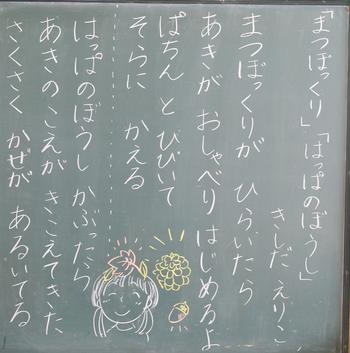 「まつぼっくり」「はっぱのぼうし」
きしだ えりこ
まつぼっくりが ひらいたら
あきが おしゃべり はじめるよ
ぱちん と ひびいて
そらに かえる
はっぱのぼうし かぶったら
あきのこえが きこえてきた
さくさく かぜが あるいてる